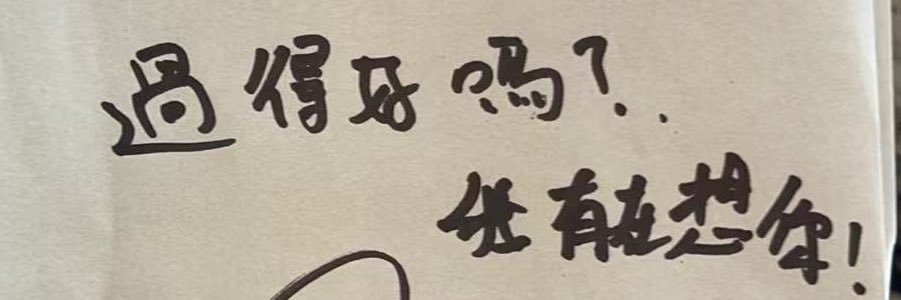 過得好嗎?..
有在想你!